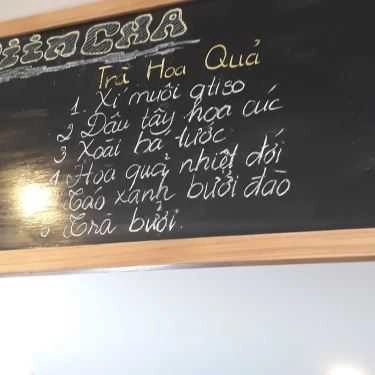 CHA
Trà Hoa Quả
1. Xí muội atiso
2 Dâu tây hoa cúc
3 Xoài bá tước
4 Hoa quả nhiệt đới
Táo xanh bưởi đào
Trà bưởi.